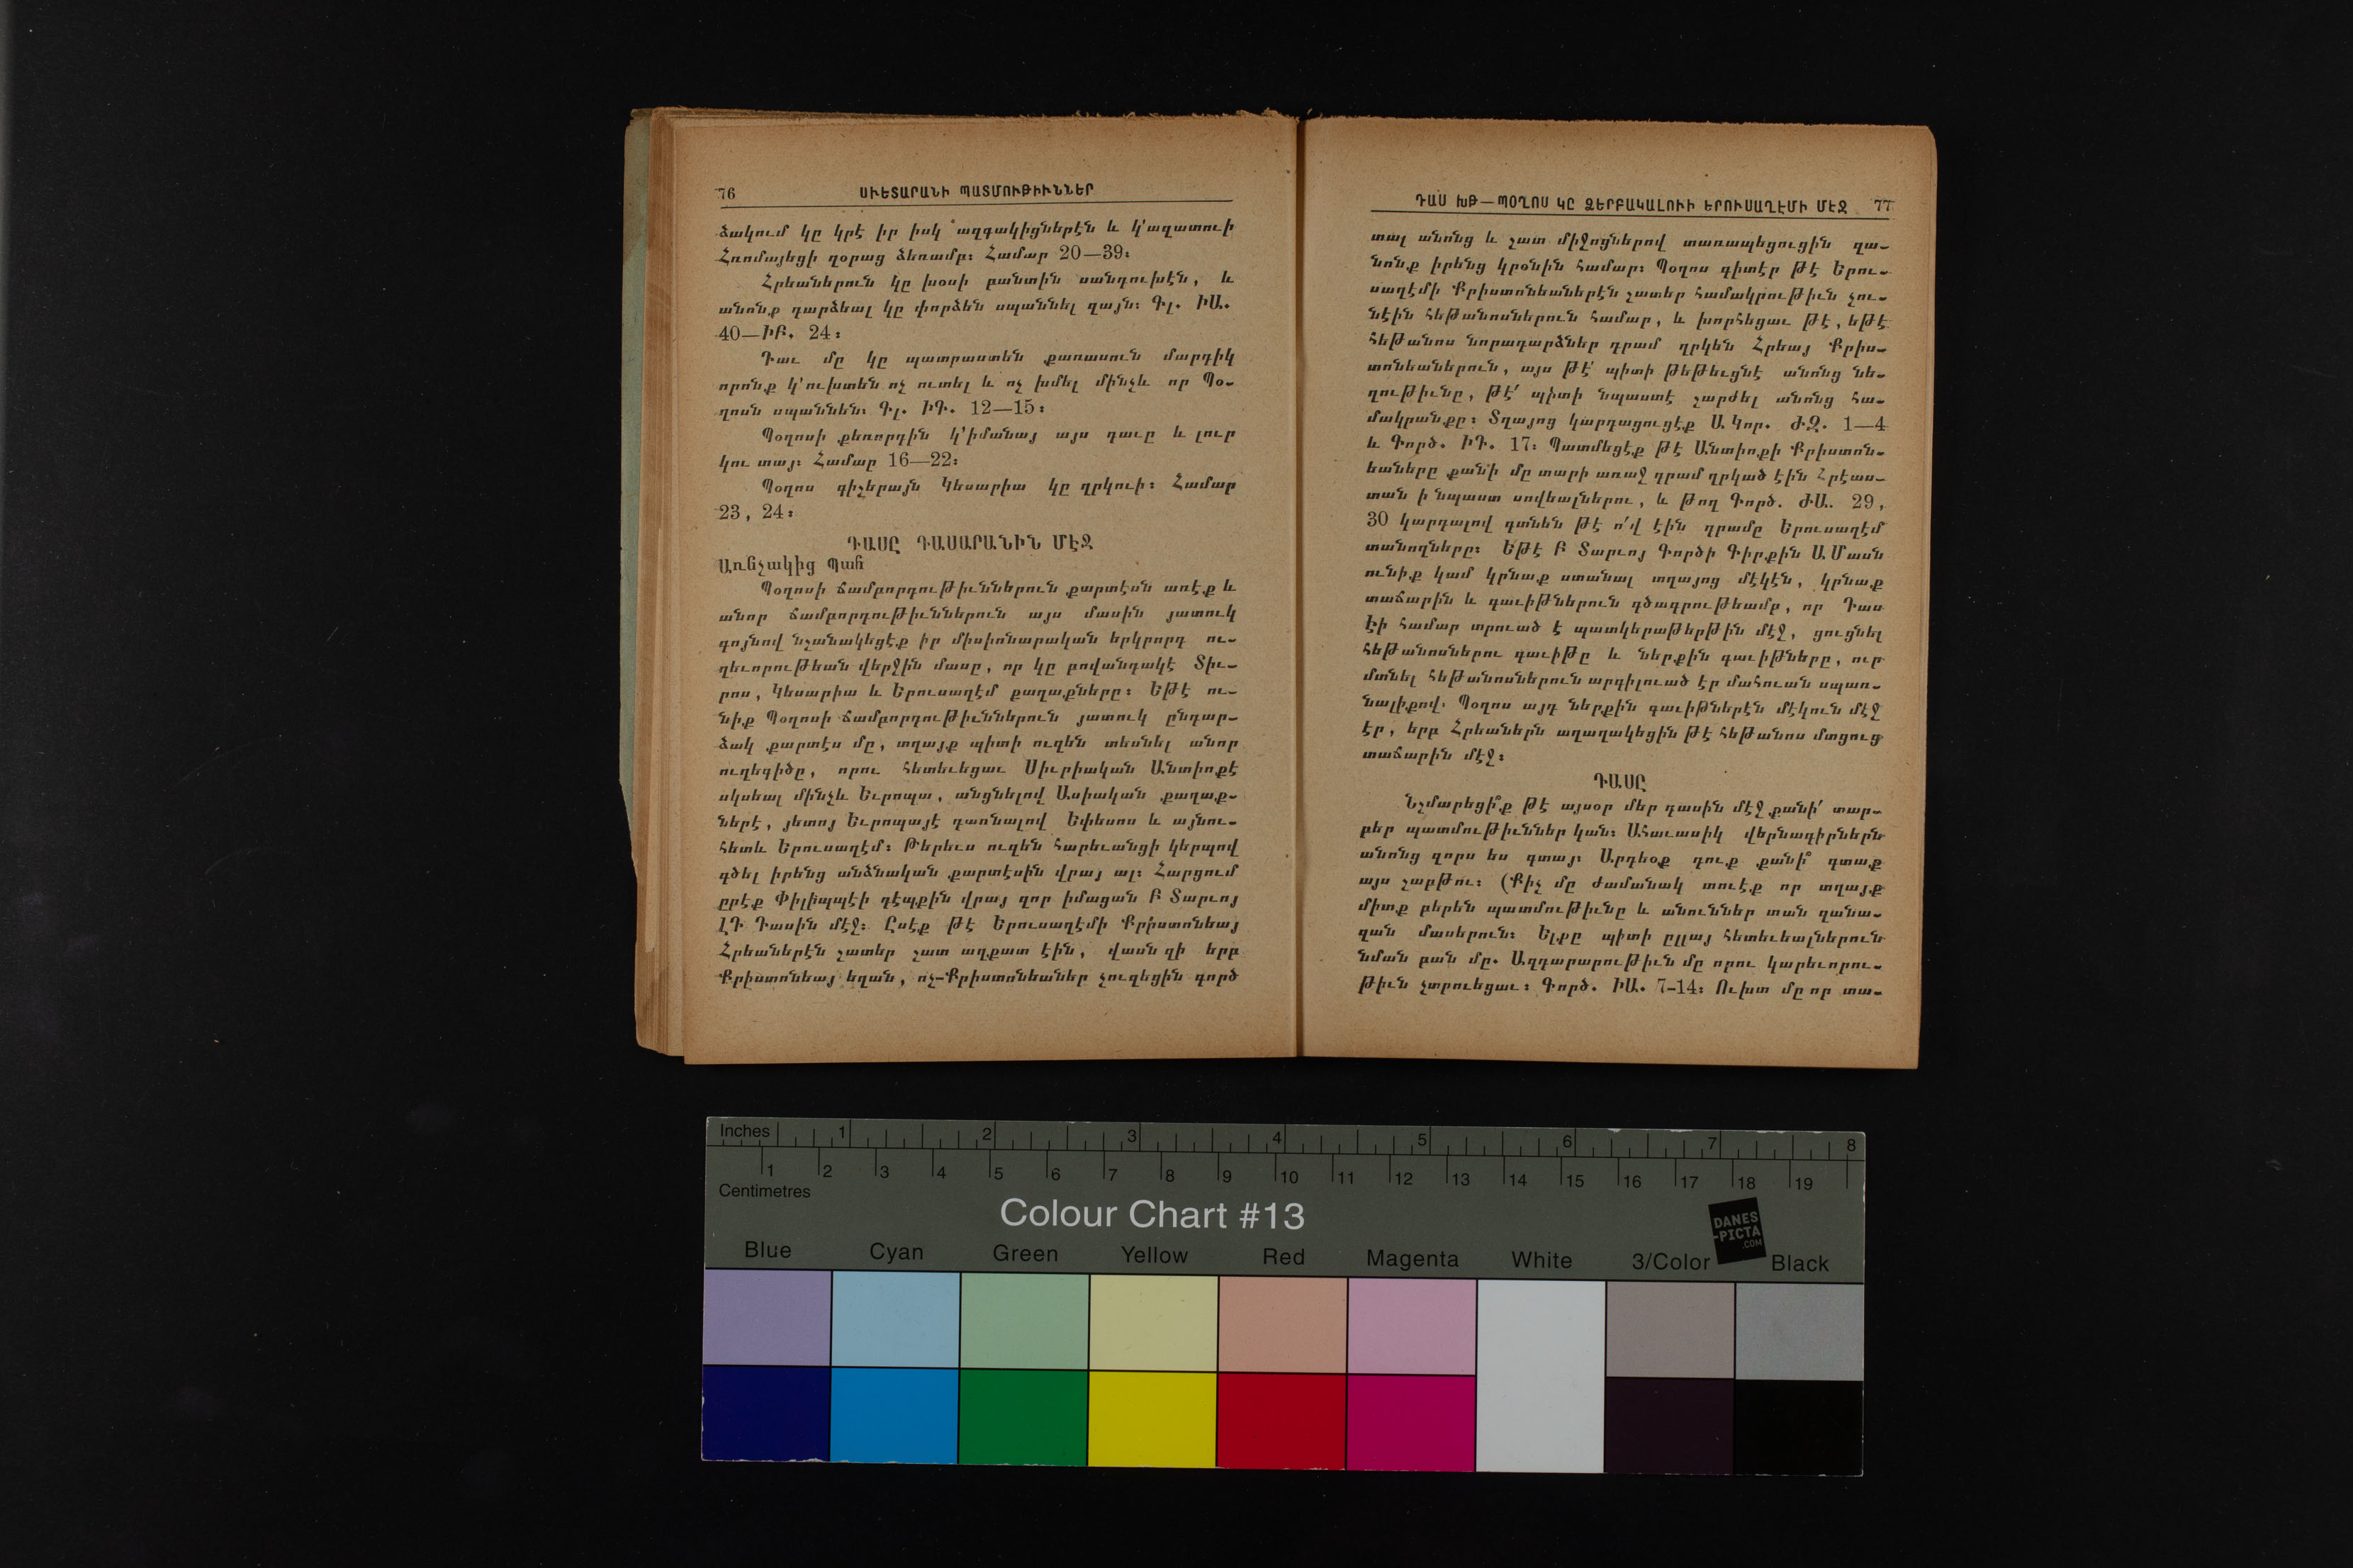 76
ՍԻԵՏԱՐԱՆԻ ՊԱՏՄՈՒԹԻՒՆՆԵՐ
ձակում կը կրէ իր իսկ ազգակիցներէն և կ՚ազատուի
Հռոմայեցի զօրաց ձեռամբ։ Համար 20—39։
Հրեաներուն կը խօսի բանտին սանդուխէն, և
անոնք դարձեալ կը փորձեն սպաննել զայն։ Գլ. ԻԱ.
40—ԻԲ. 24։
Դաւ մը կը պատրաստեն քառասուն մարդիկ
որոնք կ՚ուխտեն ոչ ուտել և ոչ խմել մինչև որ Պօ-
ղոսն սպաննեն։ Գլ. ԻԳ. 12—15։
Պօղոսի քեռորդին կ՚իմանայ այս դաւը և լուր
կու տայ։ Համար 16—22։
Պօղոս գիշերայն Կեսարիա կը ղրկուի։ Համար
23, 24։
ԴԱՍԸ ԴԱՍԱՐԱՆԻՆ ՄԷՋ
Առնչակից Պահ
Պօղոսի ճամբորդութիւններուն քարտէսն առէք և
անոր ճամբորդութիւններուն այս մասին յատուկ
գոյնով նշանակեցէք իր միսիոնարական երկրորդ ու-
ղեւորութեան վերջին մասը, որ կը բովանդակէ Տիւ-
րոս, Կեսարիա և Երուսաղէմ քաղաքները։ Եթէ ու-
նիք Պօղոսի ճամբորդութիւններուն յատուկ ընդար-
ձակ քարտէս մը, տղայք պիտի ուզեն տեսնել անոր
ուղեգիծը, որու հետեւեցաւ Սիւրիական Անտիոքէ
սկսեալ մինչև Եւրոպա, անցնելով Ասիական քաղաք-
ներէ, յետոյ Եւրոպայէ դառնալով Եփեսոս և այնու-
հետև Երուսաղէմ։ Թերեւս ուզեն հարեւանցի կերպով
գծել իրենց անձնական քարտէսին վրայ ալ։ Հարցում
ըրէք Փիլիպպէի դէպքին վրայ զոր իմացան Բ Տարւոյ
ԼԴ Դասին մէջ։ Ըսէք թէ Երուսաղէմի Քրիստոնեայ
Հրեաներէն շատեր շատ աղքատ էին, վասն զի երբ
Քրիստոնեայ եղան, ոչ-Քրիստոնեաներ չուզեցին գործ
ԴԱՍ ԽԹ—ՊՕՂՈՍ ԿԸ ՁԵՐԲԱԿԱԼՈՒԻ ԵՐՈՒՍԱՂԷՄԻ ՄԷՋ 77
տալ անոնց և շատ միջոցներով տառապեցուցին զա-
նոնք իրենց կրօնին համար։ Պօղոս գիտէր թէ Երու-
սաղէմի Քրիստոնեաներէն շատեր համակրութիւն չու-
նէին հեթանոսներուն համար, և խորհեցաւ թէ, եթէ
հեթանոս նորադարձներ դրամ ղրկեն Հրեայ Քրիս-
տոնեաներուն, այս թէ՛ պիտի թեթեւցնէ անոնց նե-
ղութիւնը, թէ՛ պիտի նպաստէ շարժել անոնց հա-
մակրանքը։ Տղայոց կարդացուցէք Ա Կոր. ԺԶ. 1—4
և Գործ. ԻԴ. 17։ Պատմեցէք թէ Անտիոքի Քրիստոն-
եաները քանի մը տարի առաջ դրամ ղրկած էին Հրէաս-
տան ի նպաստ սովեալներու, և թող Գործ. ԺԱ. 29,
30 կարդալով գտնեն թէ ո՛վ էին դրամը Երուսաղէմ
տանողները։ Եթէ Բ Տարւոյ Գործի Գիրքին Ա Մասն
ունիք կամ կրնաք ստանալ տղայոց մէկէն, կրնաք
տաճարին և գաւիթներուն գծագրութեամբ, որ Դաս
Էի համար տրուած է պատկերաթերթին մէջ, ցուցնել
հեթանոսներու գաւիթը և ներքին գաւիթները, ուր
մտնել հեթանոսներուն արգիլուած էր մահուան սպառ-
նալիքով. Պօղոս այդ ներքին գաւիթներէն մէկուն մէջ
էր, երբ Հրեաներն աղաղակեցին թէ հեթանոս մտցուց
տաճարին մէջ։
ԴԱՍԸ
Նշմարեցի՞ք թէ այսօր մեր դասին մէջ քանի՛ տար-
բեր պատմութիւններ կան։ Ահաւասիկ վերնագիրներն
անոնց զորս ես գտայ։ Արդեօք դուք քանի՞ գտաք
այս շաբթու։ (Քիչ մը ժամանակ տուէք որ տղայք
միտք բերեն պատմութիւնը և անուններ տան զանա-
զան մասերուն։ Ելքը պիտի ըլլայ հետեւեալներուն
նման բան մը. Ազդարարութիւն մը որու կարեւորու-
թիւն չտրուեցաւ։ Գործ. ԻԱ. 7-14։ Ուխտ մը որ տա-
Inches 1 2 3 4 5 6 7 8
1 2 3 4 5 6 7 8 9 10 11 12 13 14 15 16 17 18 19
Centimetres
Colour Chart #13
DANES
-PICTA
.COM
Blue Cyan Green Yellow Red Magenta White 3/Color Black